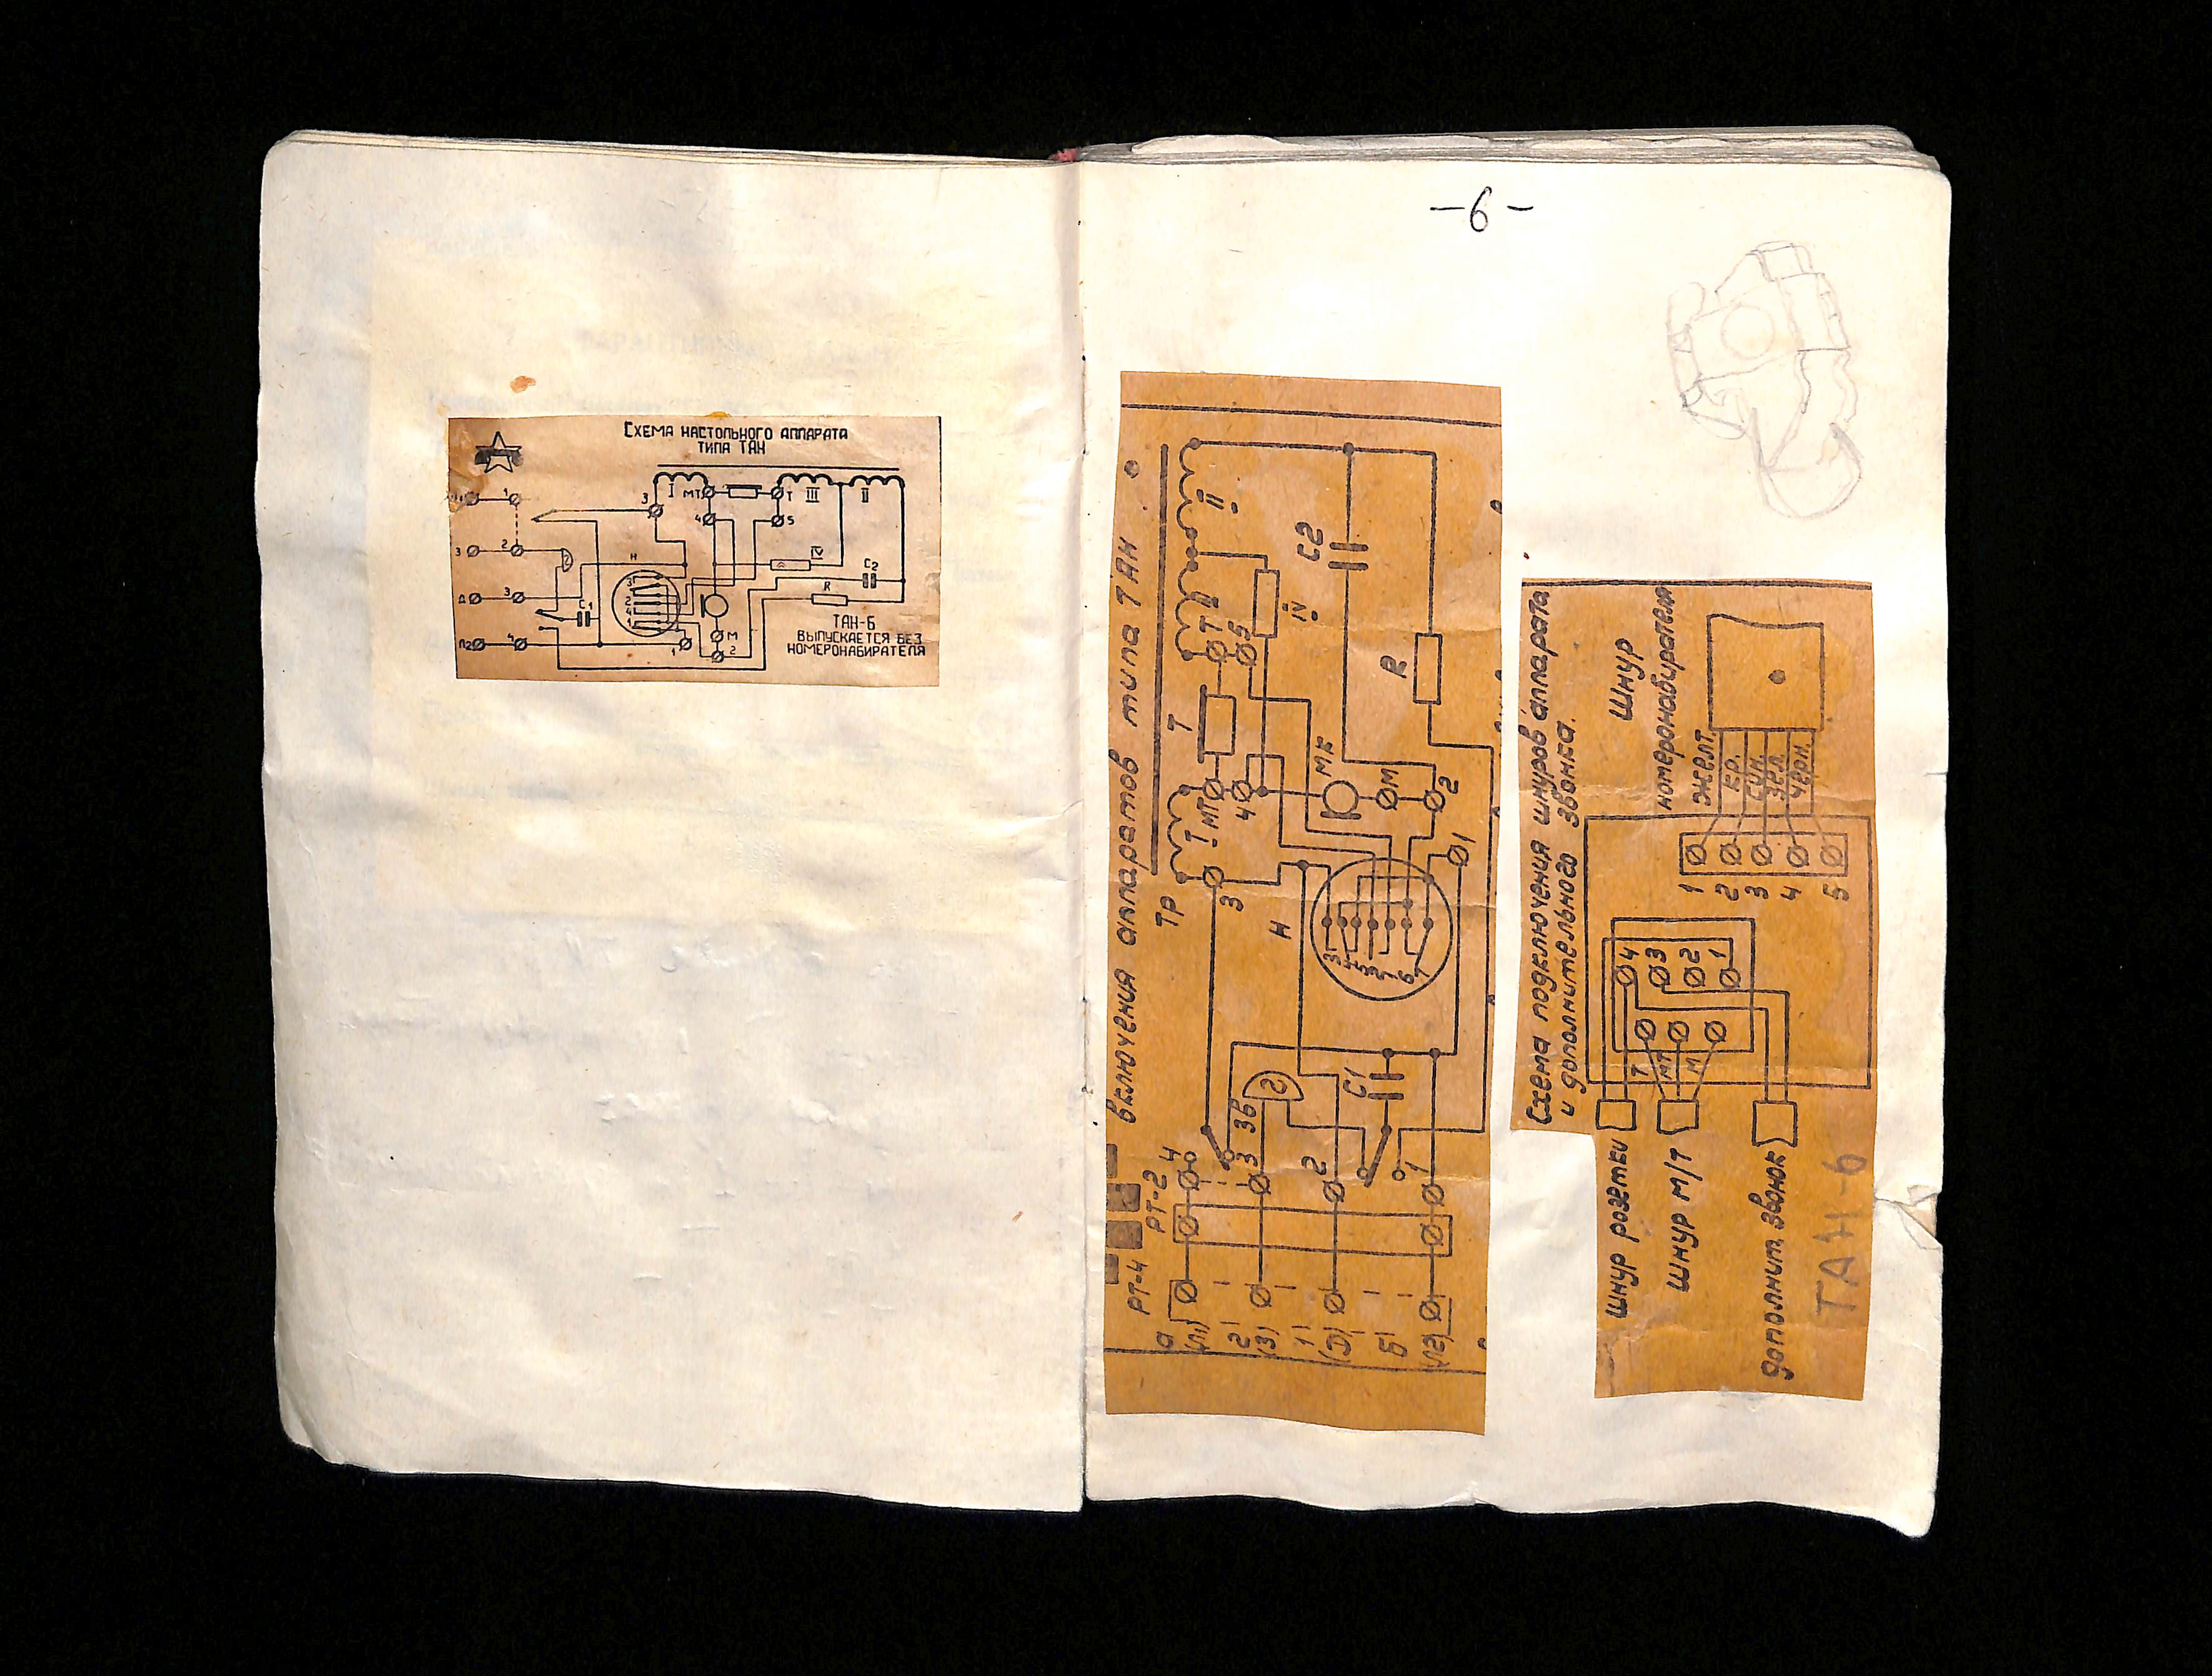 Схема настольного аппарата
типа ТАН
I
МТ
Т
III
II
3
4
5
1
3
2
IV
Н
C2
R
Д
3
C1
Л2
4
М
1
2
ТАН-Б
выпускается без
номеронабирателя
-6-
включения аппаратов типа ТАН
РТ-4
РТ-2
ТР
I
МТ
Т
Т
II
а
(Л1)
4
3
4
5
IV
C2
2
(3)
3
Зв
Н
МК
R
1
(Д)
2
C1
М
Б
(Л2)
1
1
2
Схема подключения шнуров аппарата
и дополнительного звонка.
Шнур
номеронабирателя
шнур розетки
Т
4
1
желт.
шнур М/Т
МТ
3
2
кр.
М
2
3
син.
1
4
зел.
5
черн.
дополнит. звонок
ТАН-6